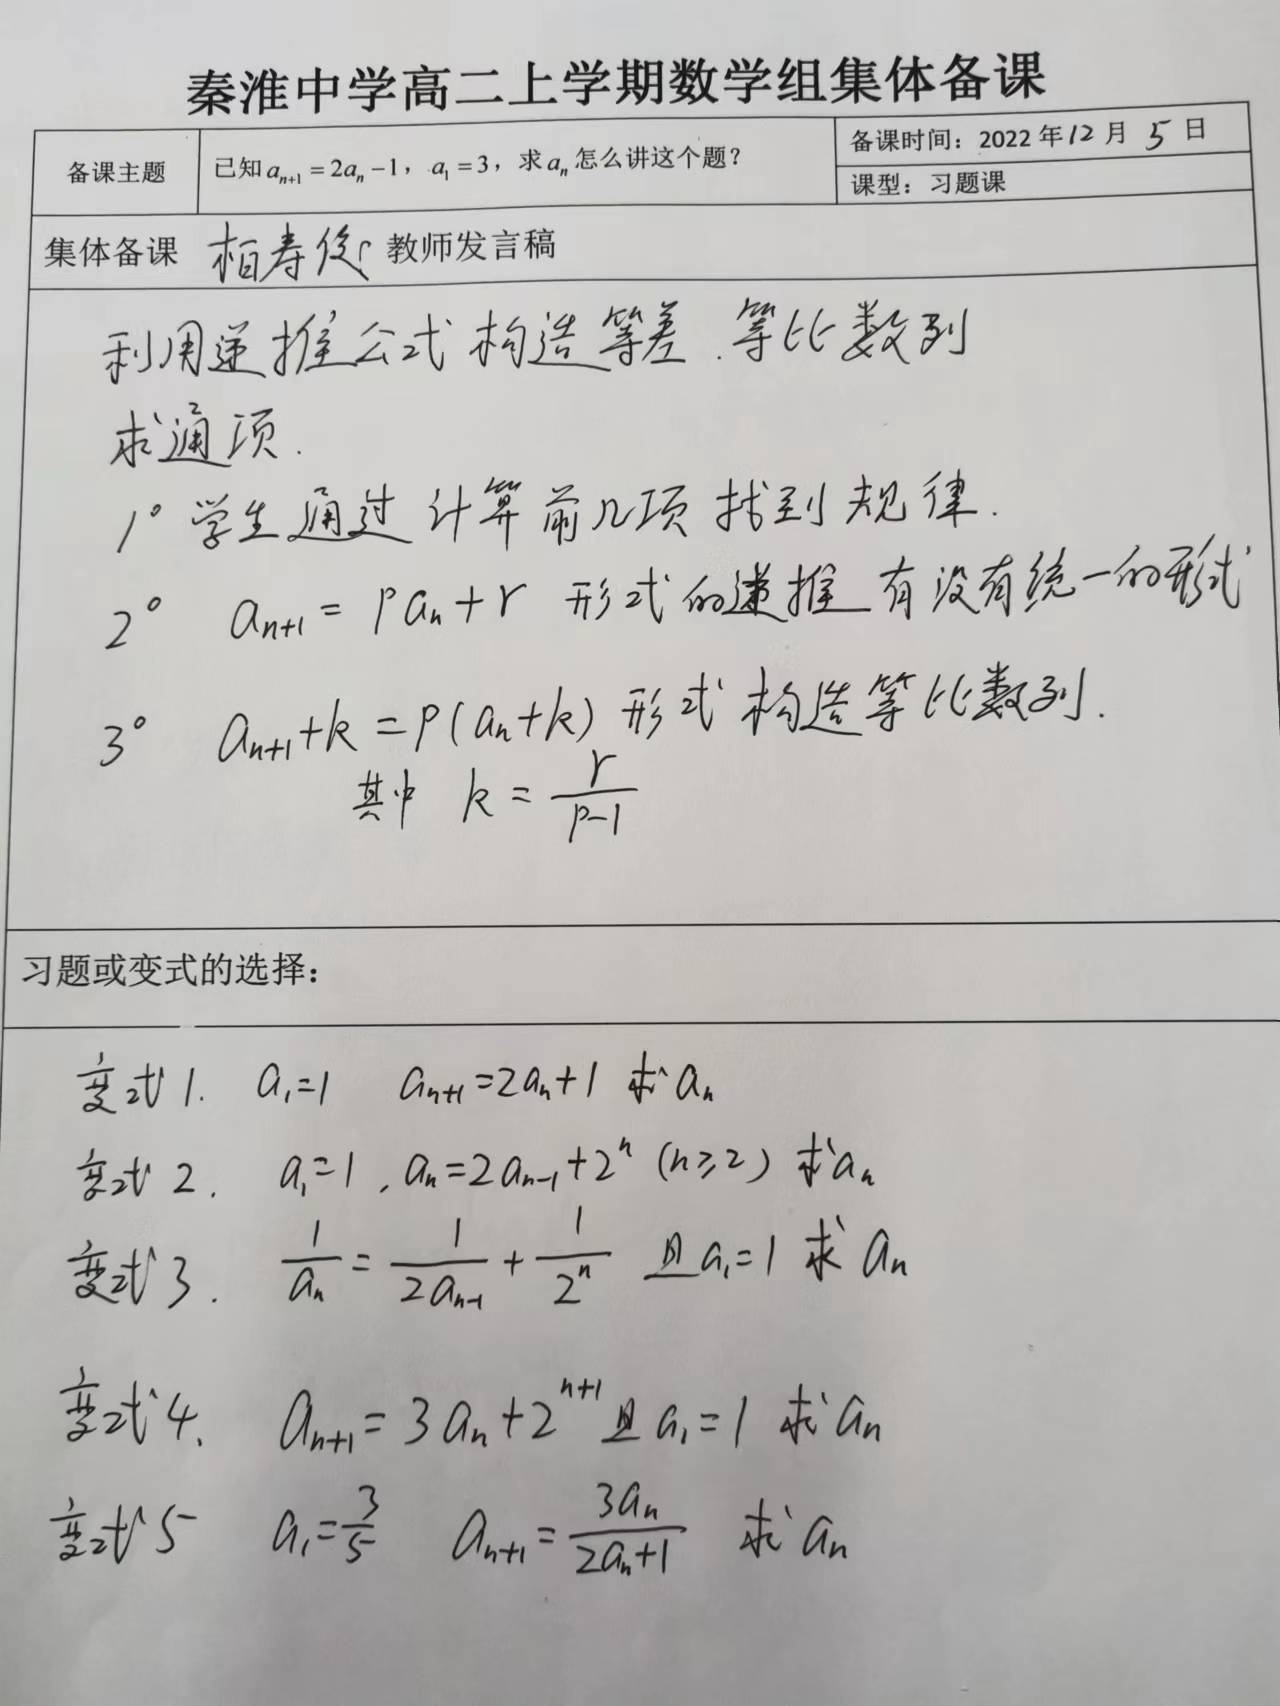 秦淮中学高二上学期数学组集体备课
备课主题
已知 aₙ₊₁ = 2aₙ − 1，a₁ = 3，求 aₙ 怎么讲这个题？
备课时间：2022 年 12 月 5 日
课型：习题课
集体备课 柏寿俊 教师发言稿
利用递推公式构造等差.等比数列
求通项.
1° 学生通过计算前几项找到规律.
2° aₙ₊₁ = paₙ + r 形式的递推有没有统一的形式
3° aₙ₊₁ + k = p(aₙ + k) 形式构造等比数列.
其中 k = r/(p−1)
习题或变式的选择：
变式1. a₁=1 aₙ₊₁=2aₙ+1 求aₙ
变式2. a₁=1，aₙ=2aₙ₋₁+2ⁿ (n≥2) 求aₙ
变式3. 1/aₙ = 1/(2aₙ₋₁) + 1/2ⁿ 且a₁=1 求aₙ
变式4. aₙ₊₁=3aₙ+2ⁿ⁺¹ 且a₁=1 求aₙ
变式5 a₁=3/5 aₙ₊₁=3aₙ/(2aₙ+1) 求aₙ